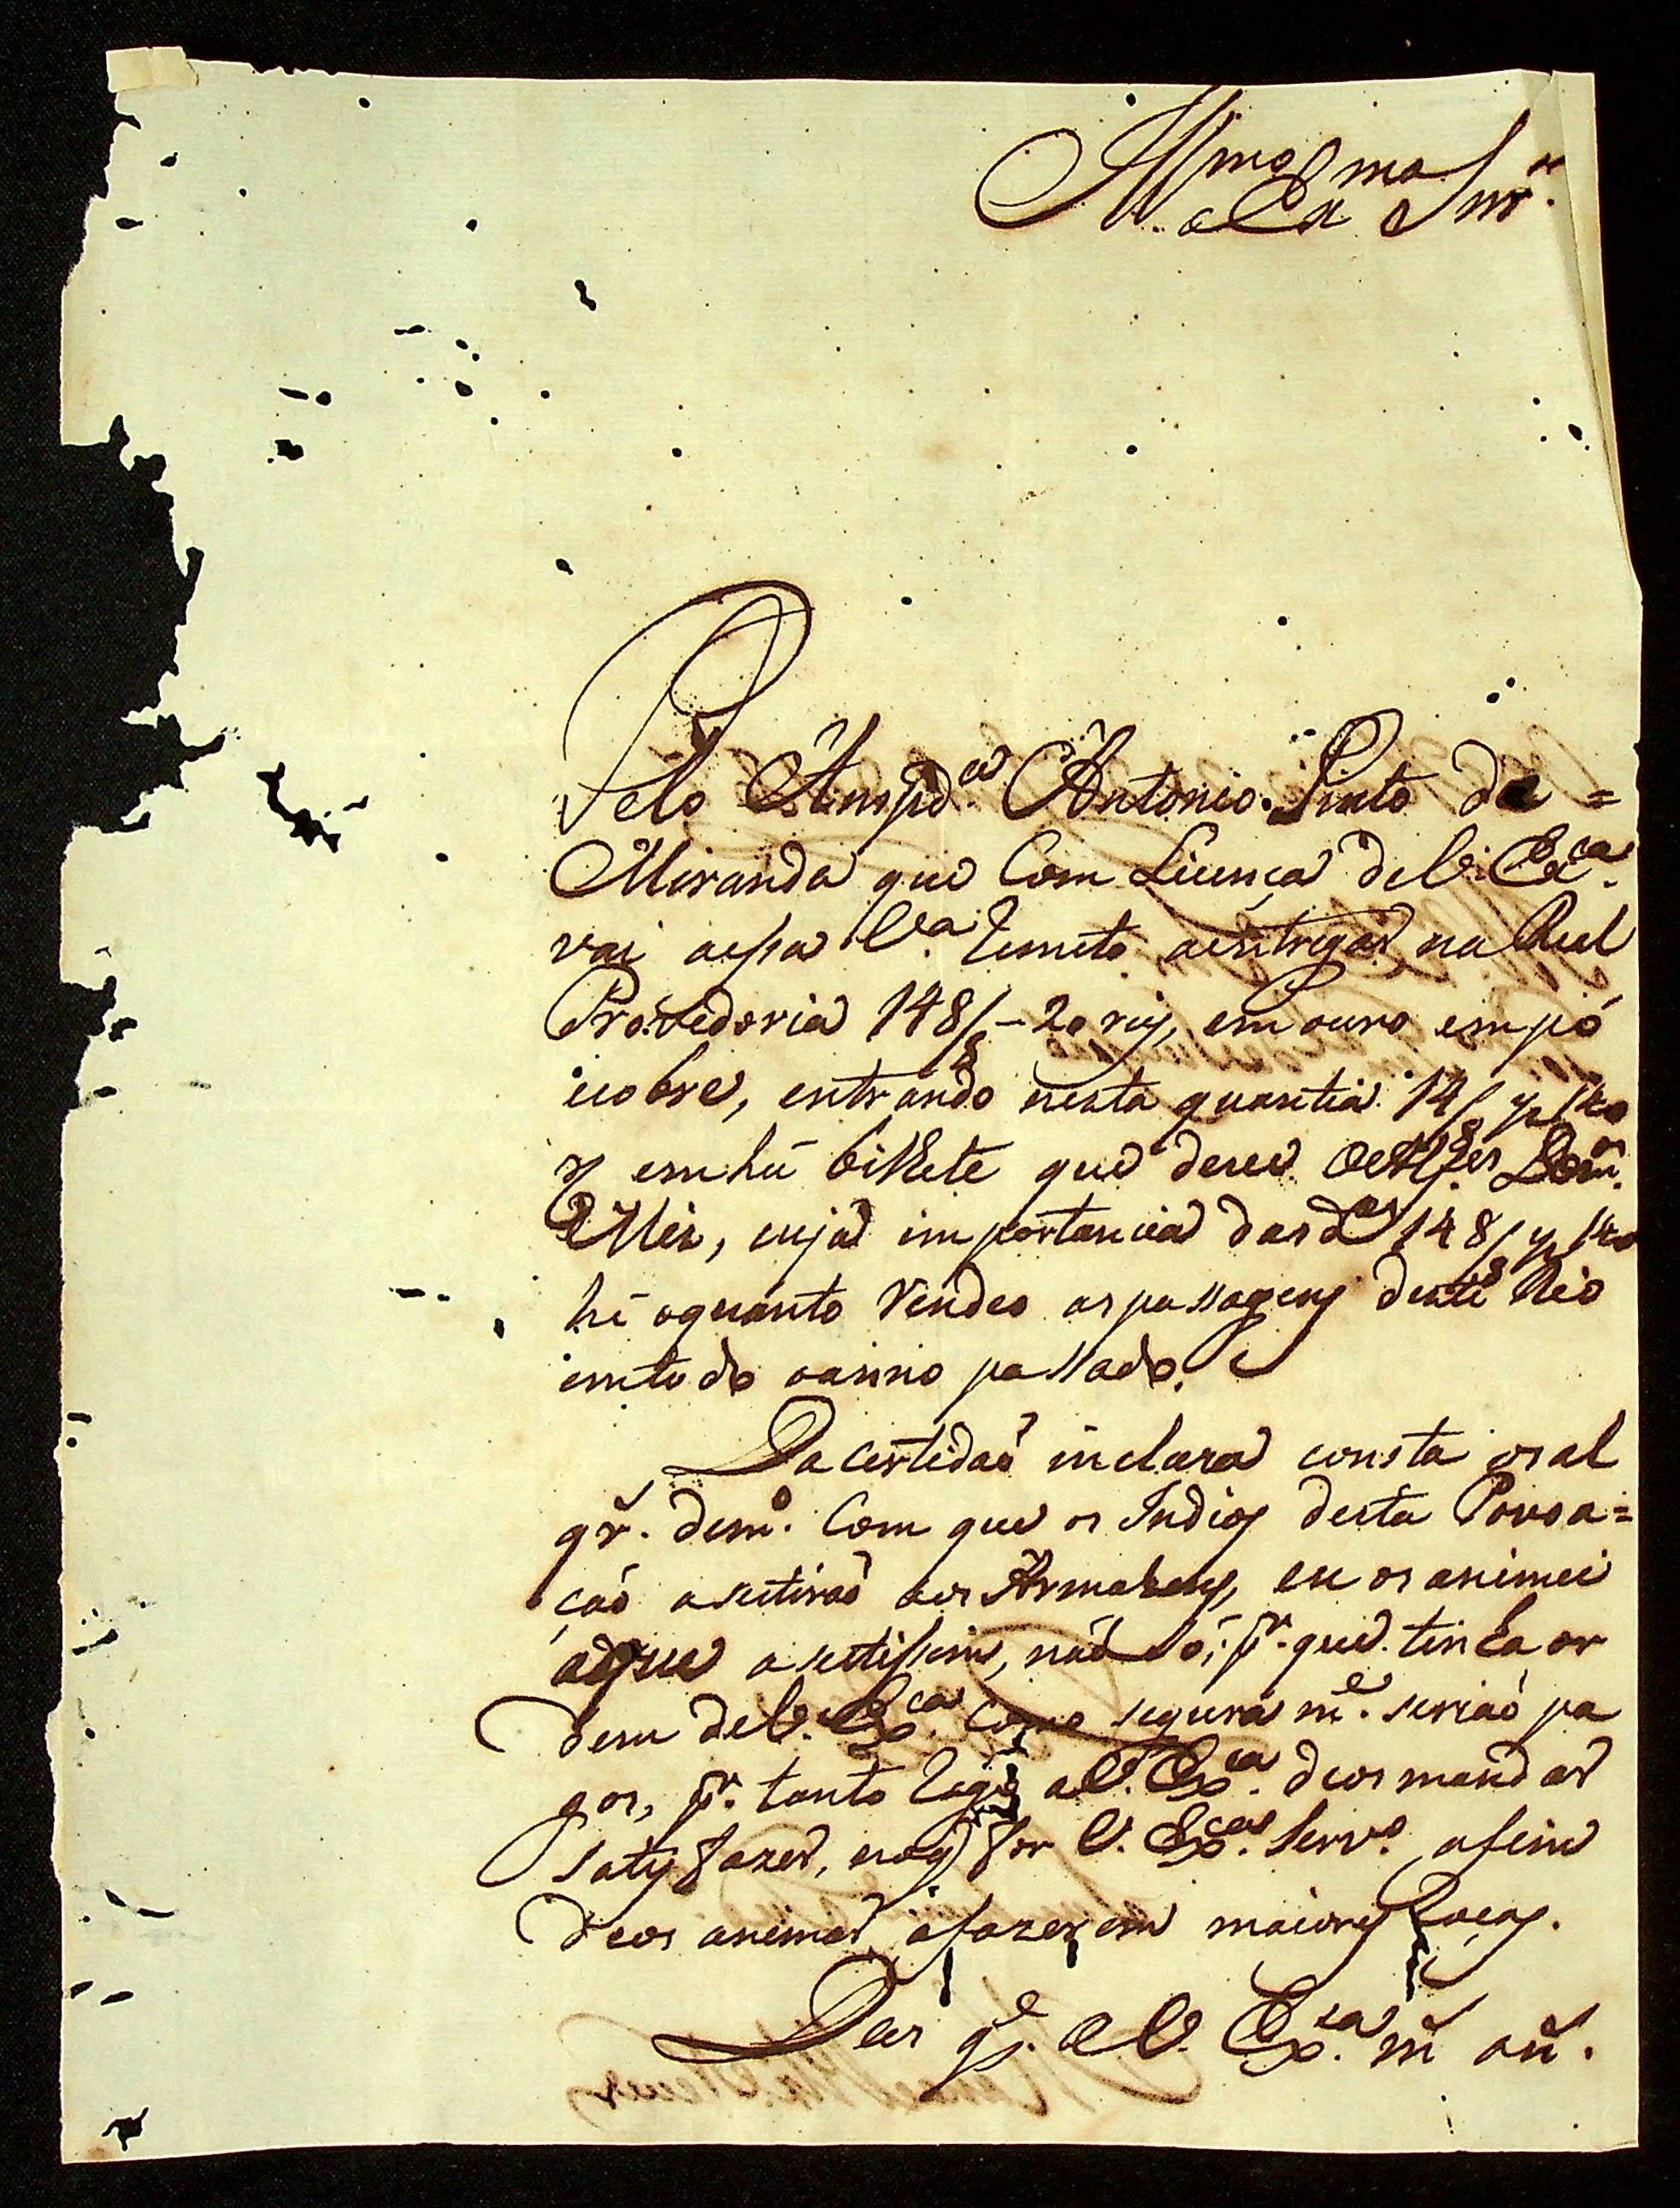 Illmo e Exmo Snr.
Pelo Anspda Antonio Pinto de =
Miranda que Com Licença de V. Exca.
vai aessa Va. remeto aentregar na Real
Provedoria 148/8-20 reis, em ouro empó
ecobre, entrando nesta quantia 14/8
emhũ bilhete que deve oAlfes
cuja importancia das 148/8
hé oquanto Rendeo aspassagens deste Rio
emtodo oanno passado.
Da certidaõ incluza consta os al
qr. demo. Com que os Indios desta Povoa=
çaõ asestiraõ aos Armazens, eu os animei
aque asestissem, náõ só, pr. que tinha or
dem deV. Exca. Como segura me. seriaõ pa
gos, pr. tanto rogo aV. Exca. deos mandar
satisfazer, no q for V. Exca. Servo. afim
deos animar áfazerem maiores Roças.
Deos ge. a V. Exca. ms. an.